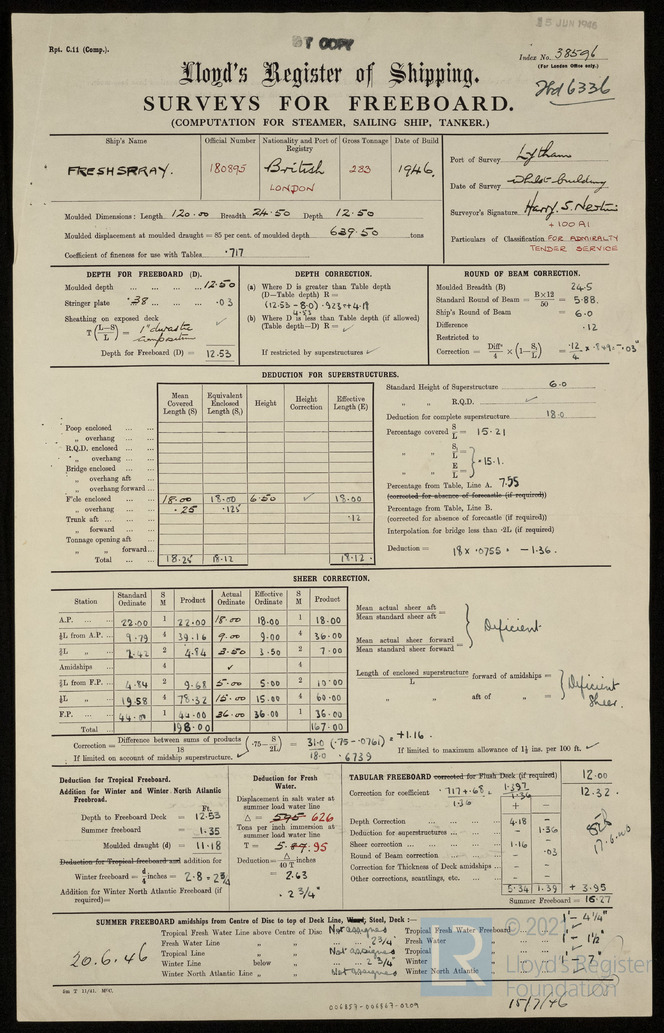 15 JUN 1946
Rpt. C.11 (Comp.).
COPY
Index No. 38596
(For London Office only.)
Lloyd's Register of Shipping.
6336
SURVEYS FOR FREEBOARD.
(COMPUTATION FOR STEAMER, SAILING SHIP, TANKER.)
Ship's Name Official Number Nationality and Port of Registry Gross Tonnage Date of Build
FRESHSPRAY. 180895 British LONDON 283 1946.
Port of Survey Lytham
Date of Survey Whilst building
Surveyor's Signature Harry. S.
Particulars of Classification +100 A1 FOR ADMIRALTY TENDER SERVICE
Moulded Dimensions: Length 120.00 Breadth 24.50 Depth 12.50
Moulded displacement at moulded draught = 85 per cent. of moulded depth 639.50 tons
Coefficient of fineness for use with Tables .717
DEPTH FOR FREEBOARD (D).
Moulded depth ... ... ... ... 12.50
Stringer plate .38 ... ... ... .03
Sheathing on exposed deck
T (L-S/L) = 1"
Depth for Freeboard (D) = 12.53
DEPTH CORRECTION.
(a) Where D is greater than Table depth
(D—Table depth) R =
(12.53 - 8.0) .923 = + 4.18
4.53
(b) Where D is less than Table depth (if allowed)
(Table depth—D) R = ✓
If restricted by superstructures ✓
ROUND OF BEAM CORRECTION.
Moulded Breadth (B) 24.5
Standard Round of Beam = B×12/50 = 5.88.
Ship's Round of Beam = 6.0
Difference .12
Restricted to
Correction = Diff/4 × (1 - S₁/L) = .12/4 × .849 = -.03"
DEDUCTION FOR SUPERSTRUCTURES.
Mean Covered Length (S) Equivalent Enclosed Length (S₁) Height Height Correction Effective Length (E)
Poop enclosed ... ...
„ overhang ... ...
R.Q.D. enclosed ... ...
„ overhang ...
Bridge enclosed ... ...
„ overhang aft ...
„ overhang forward ...
F'cle enclosed ... ... 18.00 18.00 6.50 ✓ 18.00
„ overhang ... ... .25 .125 .12
Trunk aft ... ...
„ forward ...
Tonnage opening aft
„ „ forward...
Total ... 18.25 18.12 18.12
Standard Height of Superstructure 6.0
„ „ R.Q.D. ✓
Deduction for complete superstructure 18.0
Percentage covered S/L = 15.21
„ „ S₁/L =
„ „ E/L = } .15.1.
Percentage from Table, Line A. 7.55
(corrected for absence of forecastle (if required))
Percentage from Table, Line B.
(corrected for absence of forecastle (if required))
Interpolation for bridge less than .2L (if required)
Deduction = 18 × .0755 = -1.36.
SHEER CORRECTION.
Station Standard Ordinate S M Product Actual Ordinate Effective Ordinate S M Product
A.P. ... ... 22.00 1 22.00 18.00 18.00 1 18.00
⅙L from A.P. ... 9.79 4 39.16 9.00 9.00 4 36.00
⅓L „ ... 2.42 2 4.84 3.50 3.50 2 7.00
Amidships ... 4 ✓ 4
⅓L from F.P. ... 4.84 2 9.68 5.00 5.00 2 10.00
⅙L „ ... 19.58 4 78.32 15.00 15.00 4 60.00
F.P. ... ... 44.00 1 44.00 36.00 36.00 1 36.00
Total ... 198.00 167.00
Mean actual sheer aft
Mean standard sheer aft =
Mean actual sheer forward
Mean standard sheer forward =
} Deficient.
Length of enclosed superstructure/L forward of amidships =
„ „ aft of „ =
} Deficient Sheer.
Correction = Difference between sums of products/18 (.75 - S/2L) = 31.0/18.0 (.75 - .0761) = +1.16.
.6739
If limited on account of midship superstructure. ✓
If limited to maximum allowance of 1½ ins. per 100 ft. ✓
Deduction for Tropical Freeboard.
Addition for Winter and Winter North Atlantic Freeboard.
Ft.
Depth to Freeboard Deck = 12.53
Summer freeboard = 1.35
Moulded draught (d) = 11.18
Deduction for Tropical freeboard and addition for
Winter freeboard = d/4 inches = 2.8 = 2¾
Addition for Winter North Atlantic Freeboard (if required) =
Deduction for Fresh Water.
Displacement in salt water at summer load water line
Δ = 595 626
Tons per inch immersion at summer load water line
T = 5.95
Deduction = Δ/40 T inches
= 2.63
. 2¾"
TABULAR FREEBOARD corrected for Flush Deck (if required) 12.00
Correction for coefficient .717 + .68 / 1.36 = 1.397/1.36 12.32.
+ -
Depth Correction ... ... ... 4.18 -
Deduction for superstructures ... ... - 1.36
Sheer correction ... ... ... 1.16 -
Round of Beam correction ... ... - .03
Correction for Thickness of Deck amidships - -
Other corrections, scantlings, etc. ... - -
5.34 1.39 + 3.95
Summer Freeboard = 16.27
17.6.46
SUMMER FREEBOARD amidships from Centre of Disc to top of Deck Line, Wood, Steel, Deck :— 1'- 4¼"
Tropical Fresh Water Line above Centre of Disc Not assigned Tropical Fresh Water Freeboard
Fresh Water Line „ „ ... 2¾" Fresh Water „ 1'- 1½"
Tropical Line „ „ Not assigned Tropical „
Winter Line below „ ... 2¾" Winter „ 1'- 7"
Winter North Atlantic Line „ „ Not assigned Winter North Atlantic „
20.6.46
© 202
LR
Lloyd's Register
Foundation
15/7/46
006857-006867-0209